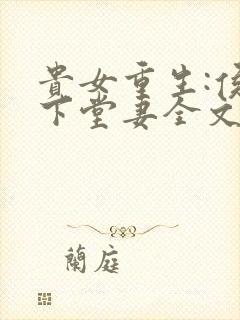 貴女重生:侯
下堂妻全文
蘭庭